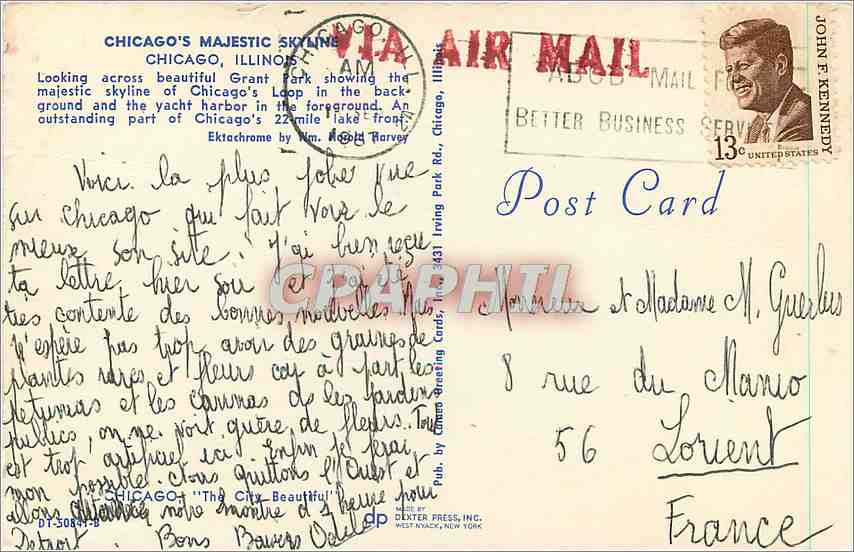 CHICAGO'S MAJESTIC SKYLINE
CHICAGO, ILLINOIS
Looking across beautiful Grant Park showing the
majestic skyline of Chicago's Loop in the back-
ground and the yacht harbor in the foreground. An
outstanding part of Chicago's 22-mile lake front.
Ektachrome by Wm. Harold Harvey
CHICAGO, ILL.
AM
1967
VIA AIR MAIL
MAIL FO
BETTER BUSINESS SERV
JOHN F. KENNEDY
13c UNITED STATES
Post Card
Voici la plus jolie vue
sur Chicago qui fait voir le
mieux son site. J'ai bien reçu
ta lettre hier soir et ai été
très contente des bonnes nouvelles. Je
n'espère pas trop avoir des graines de
plantes rares et fleurs car à part les
petunias et les cannas ds les jardins
publics, on ne voit guère de fleurs. Tout
est trop artificiel ici. Enfin je ferai
mon possible. Nous quittons l'Ouest et
allons notre montre d'1 heure pour
Detroit. Bons Baisers Odile
CHICAGO "The City Beautiful"
DT-50841-B
Pub. by Cameo Greeting Cards, Inc., 3431 Irving Park Rd., Chicago, Illinois
dp
MADE BY
DEXTER PRESS, INC.
WEST NYACK, NEW YORK
CPAPHIL
Monsieur et Madame M.
8 rue du Manio
56 Lorient
France